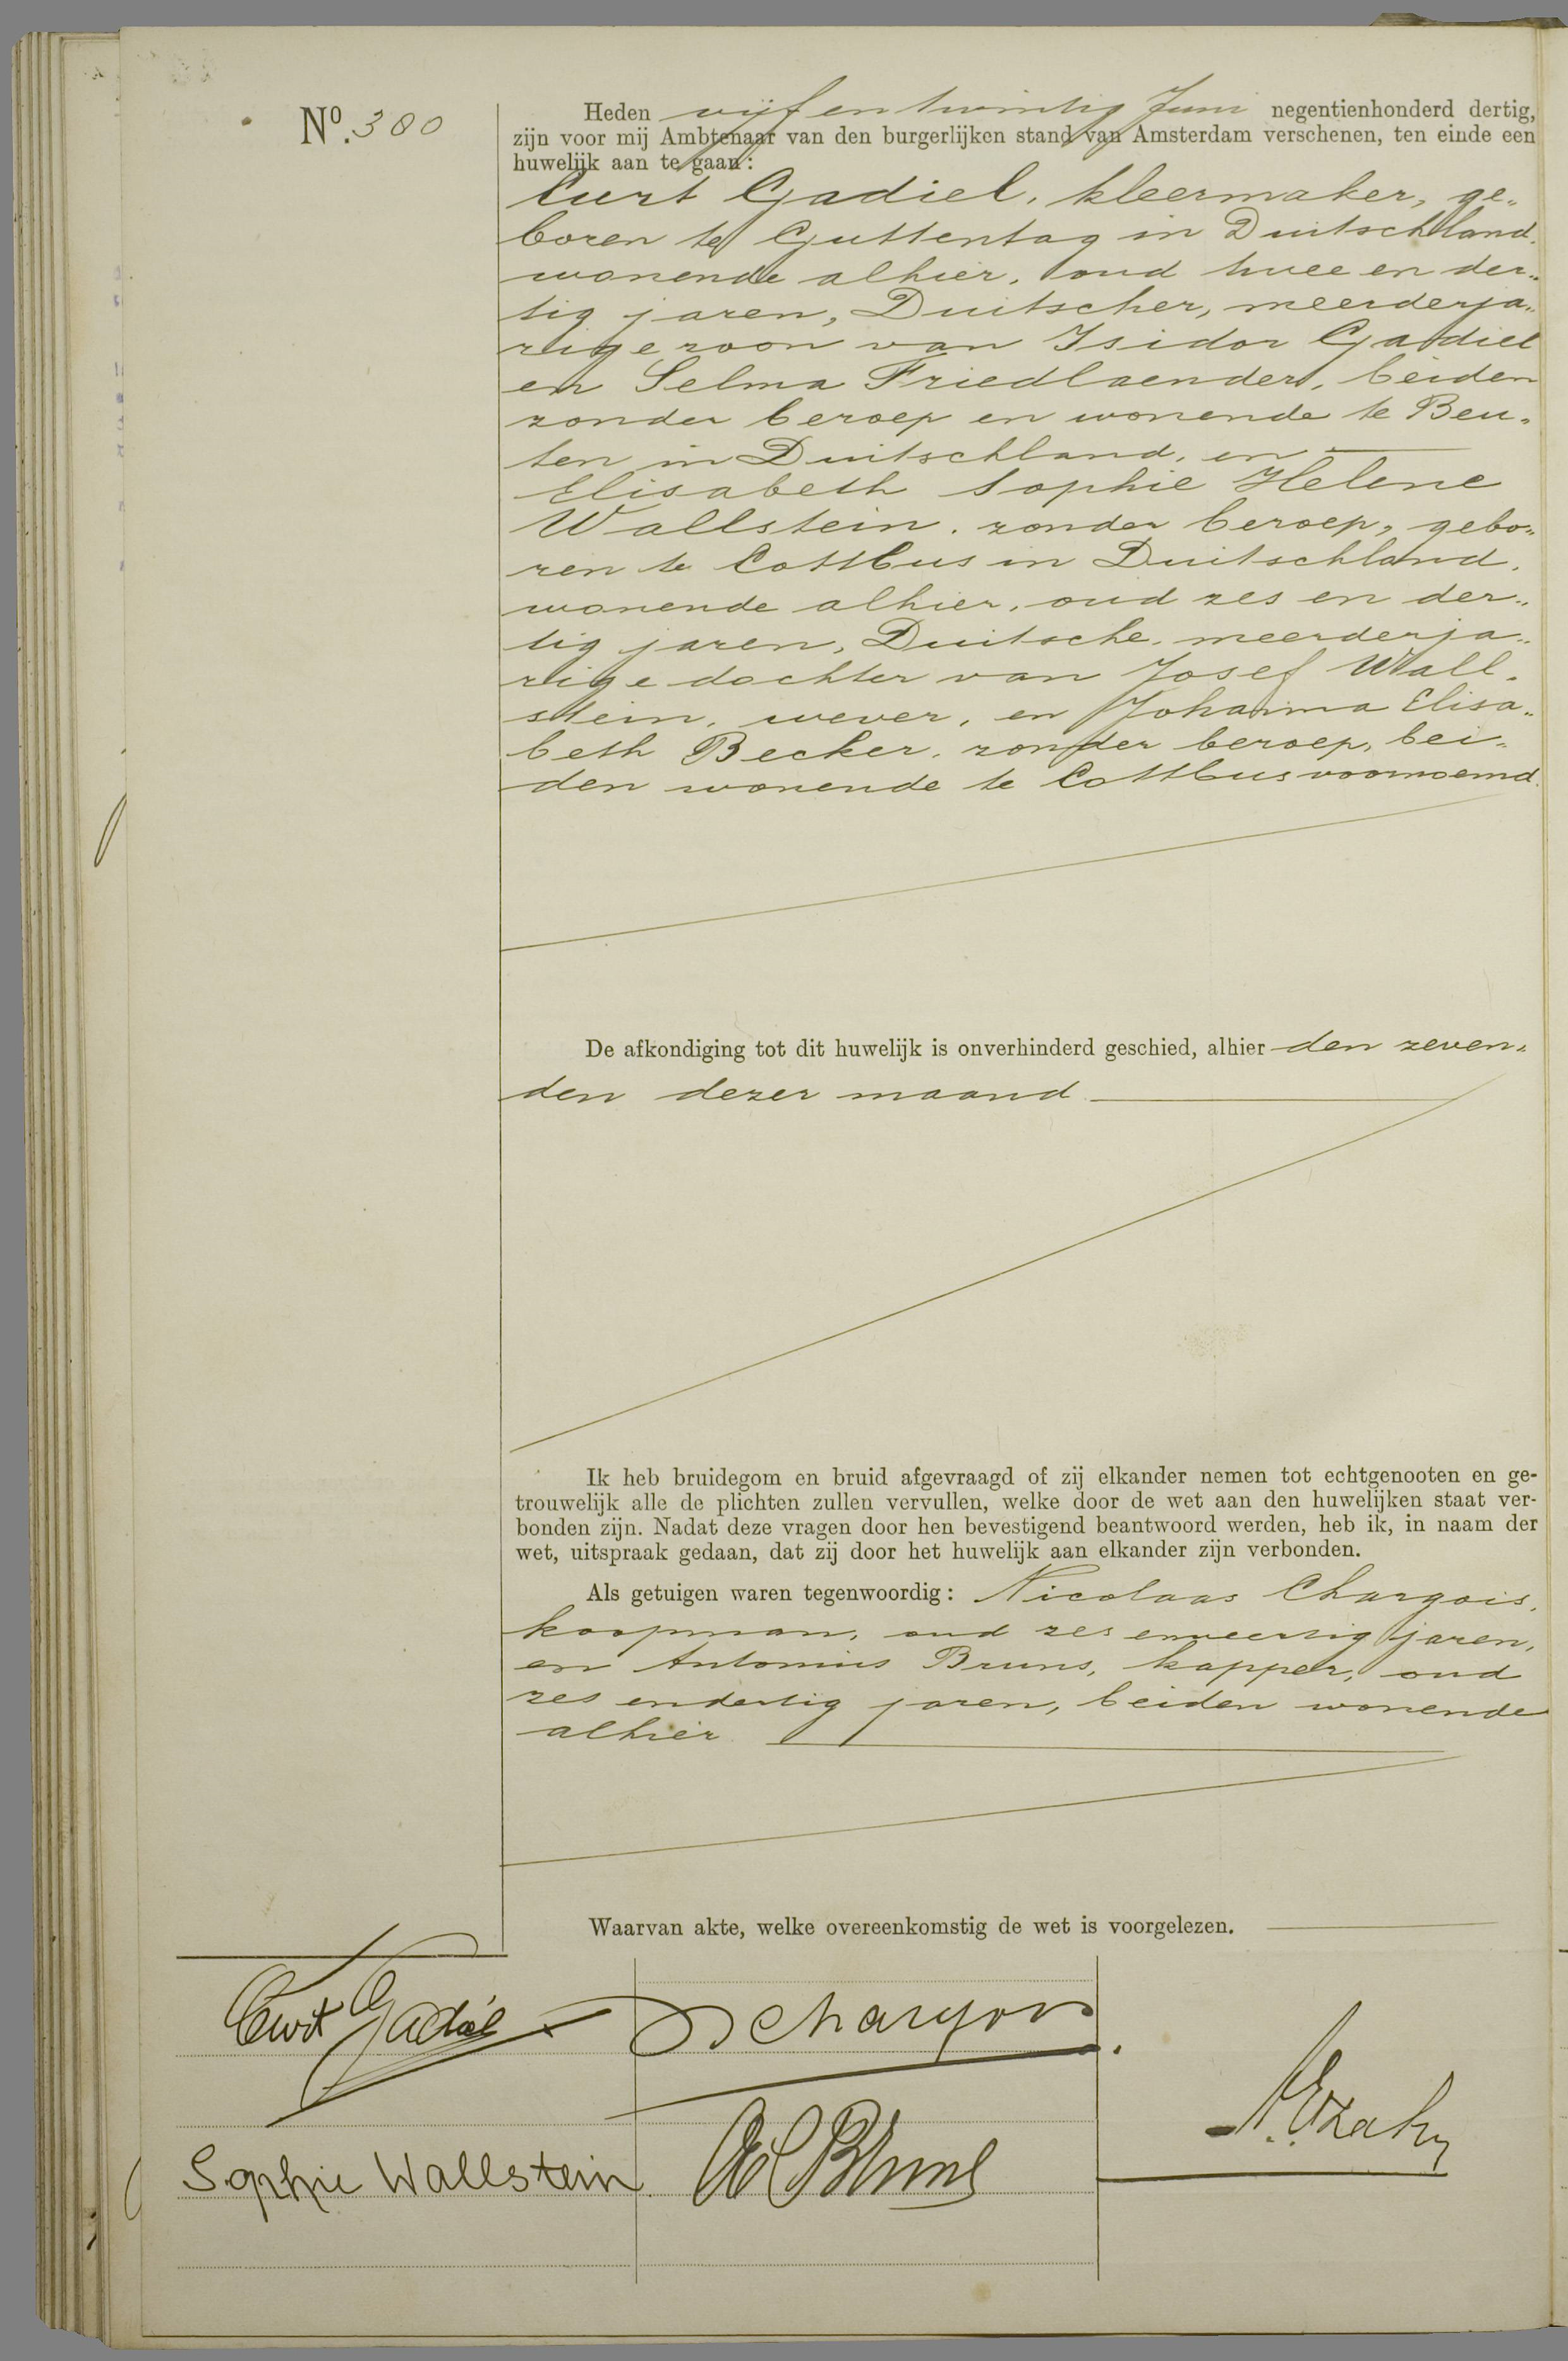 No. 380
Heden vijf en twintig Juni negentienhonderd dertig,
zijn voor mij Ambtenaar van den burgerlijken stand van Amsterdam verschenen, ten einde een
huwelijk aan te gaan:
Curt Gadiel, kleermaker, ge„
boren te Guttentag in Duitschland,
wonende alhier, oud twee en der„
tig jaren, Duitscher, meerderja„
rige zoon van Isidor Gadiel
en Selma Friedlaender, beiden
zonder beroep en wonende te Beu„
ten in Duitschland, en
Elisabeth Sophie Helene
Wallstein, zonder beroep, gebo„
ren te Cottbus in Duitschland,
wonende alhier, oud zes en der„
tig jaren, Duitsche, meerderja„
rige dochter van Josef Wall„
stein, wever, en Johanna Elisa„
beth Becker, zonder beroep, bei„
den wonende te Cottbus voornoemd.
De afkondiging tot dit huwelijk is onverhinderd geschied, alhier den zeven„
den dezer maand
Ik heb bruidegom en bruid afgevraagd of zij elkander nemen tot echtgenooten en ge-
trouwelijk alle de plichten zullen vervullen, welke door de wet aan den huwelijken staat ver-
bonden zijn. Nadat deze vragen door hen bevestigend beantwoord werden, heb ik, in naam der
wet, uitspraak gedaan, dat zij door het huwelijk aan elkander zijn verbonden.
Als getuigen waren tegenwoordig: Nicolaas Chargois,
koopman, oud zes enveertig jaren,
en Antonius Bruns, kapper, oud
zes endertig jaren, beiden wonende
alhier
Waarvan akte, welke overeenkomstig de wet is voorgelezen.
Curt Gadiel
Chargois
Sophie Wallstein
Bruns